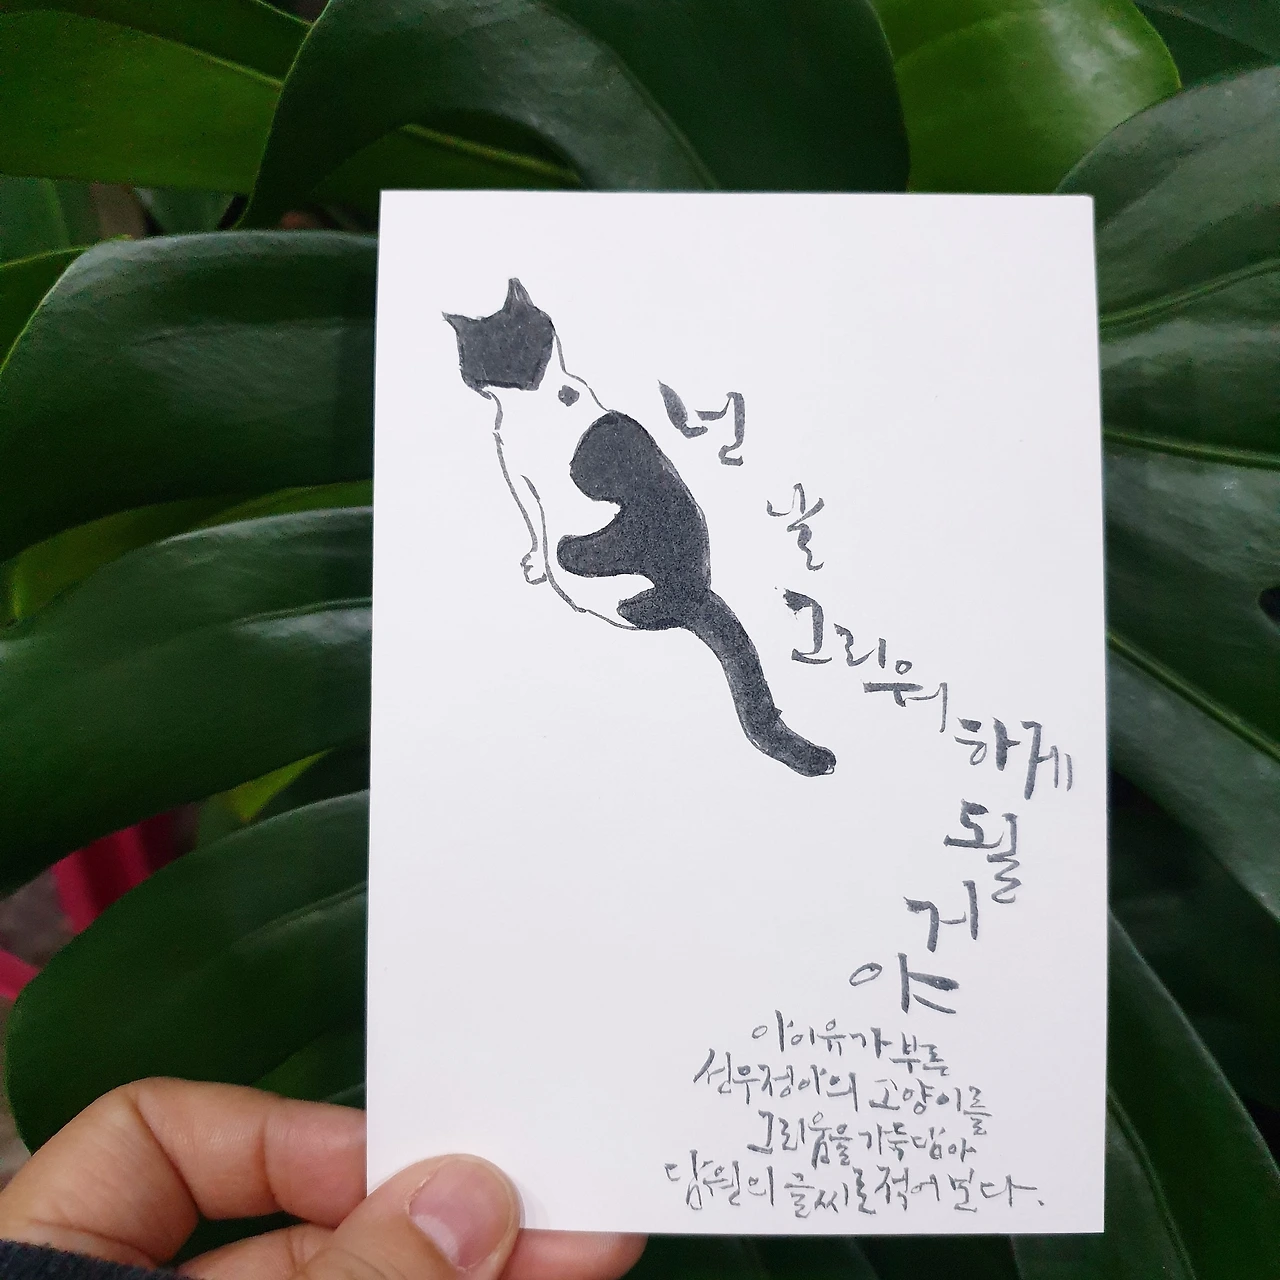 넌
날
그리워
하게
될
거
야
아이유가 부른
선우정아의 고양이를
그리움을 가득담아
담원의 글씨로 적어 본다.